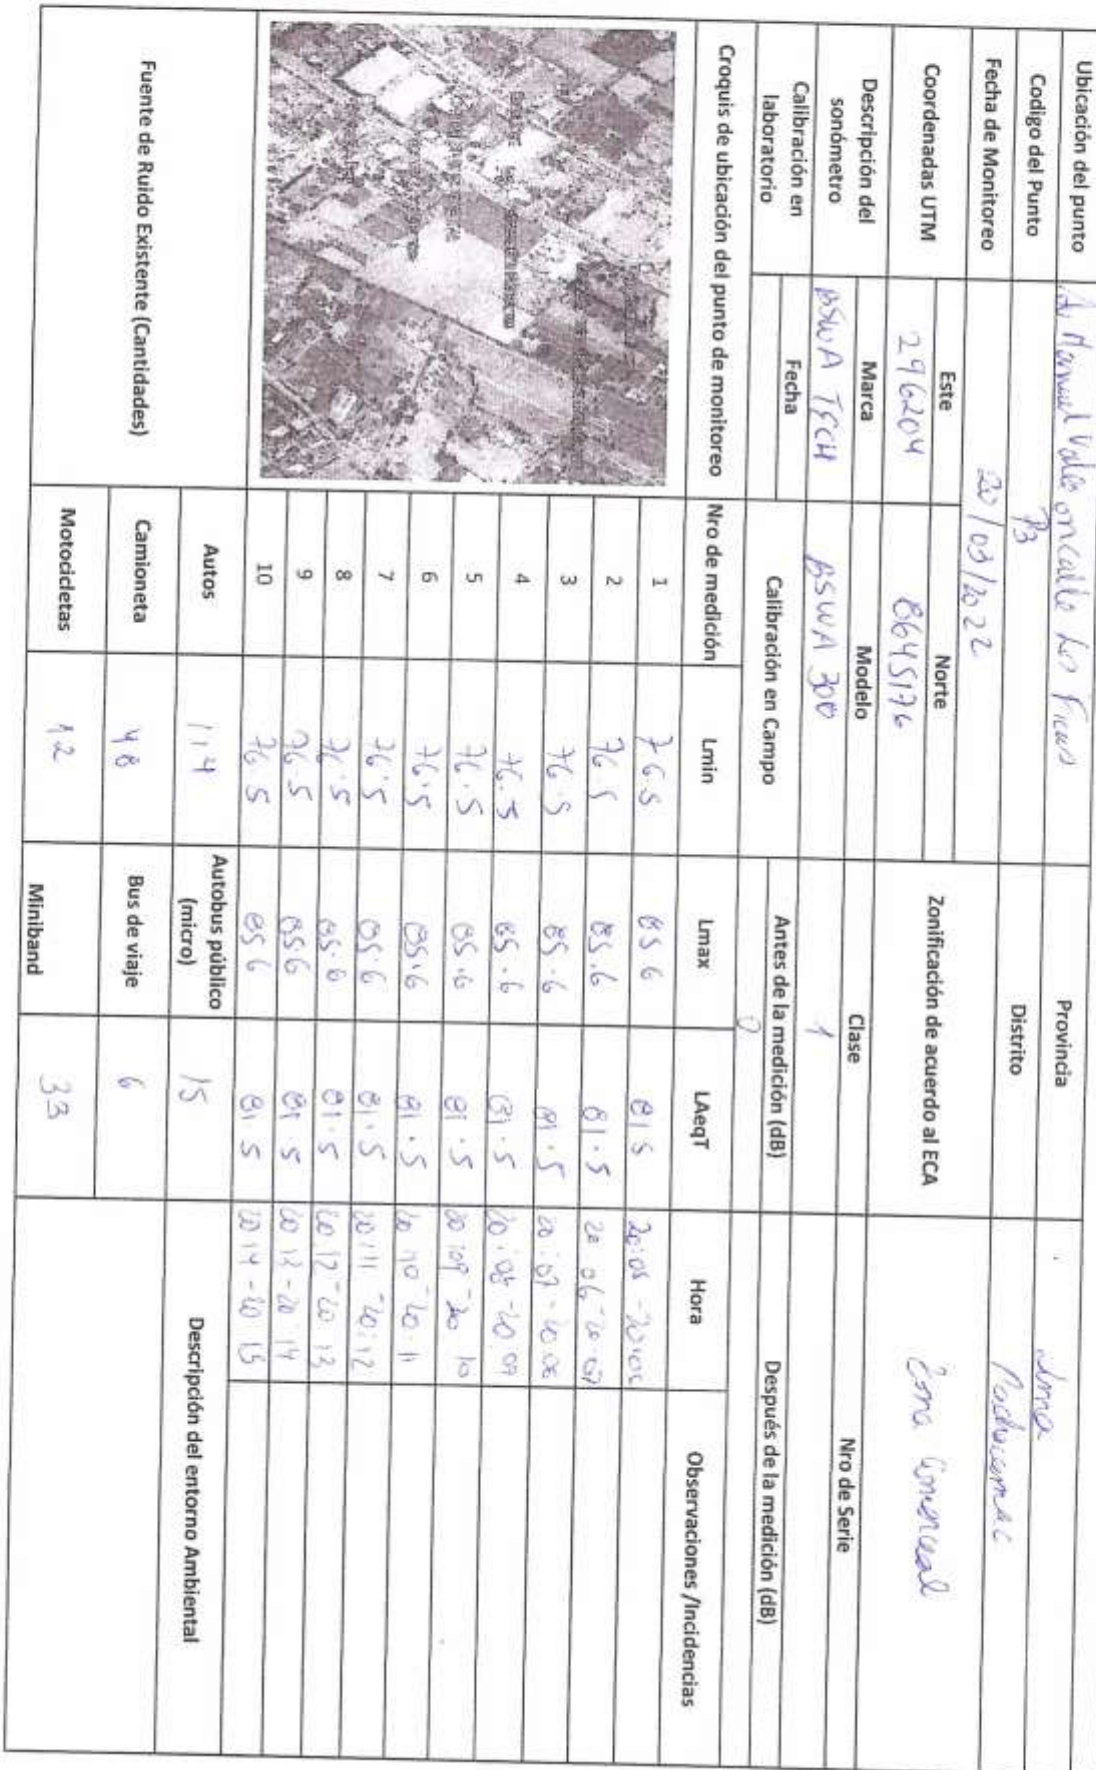 Ubicación del punto Av Manuel Valle on calle Los Ficus Provincia Lima
Codigo del Punto P3 Distrito Pachacamac
Fecha de Monitoreo 20/03/2022
Coordenadas UTM Este Norte Zonificación de acuerdo al ECA Zona Comercial
296204 8645176
Descripción del sonómetro Marca Modelo Clase Nro de Serie
BSWA TECH BSWA 300 1
Calibración en laboratorio Fecha Calibración en Campo Antes de la medición (dB) Después de la medición (dB)
0
Croquis de ubicación del punto de monitoreo Nro de medición Lmin Lmax LAeqT Hora Observaciones /Incidencias
1 76.5 85 6 81 5 20:05 - 20:06
2 76 5 85.6 81.5 20 06 - 20 07
3 76.5 85.6 81.5 20:07 - 20 08
4 76.5 85.6 81.5 20:08 - 20:09
5 76.5 85.6 81.5 20:09 - 20 10
6 76.5 85.6 81.5 20 10 - 20 11
7 76.5 85.6 81.5 20:11 - 20:12
8 76.5 85.6 81.5 20 12 - 20 13
9 76.5 856 81.5 20 13 - 20 14
10 76.5 85 6 81.5 20 14 - 20 15
Fuente de Ruido Existente (Cantidades) Autos 114 Autobus público (micro) 15 Descripción del entorno Ambiental
Camioneta 48 Bus de viaje 6
Motocicletas 12 Miniband 33